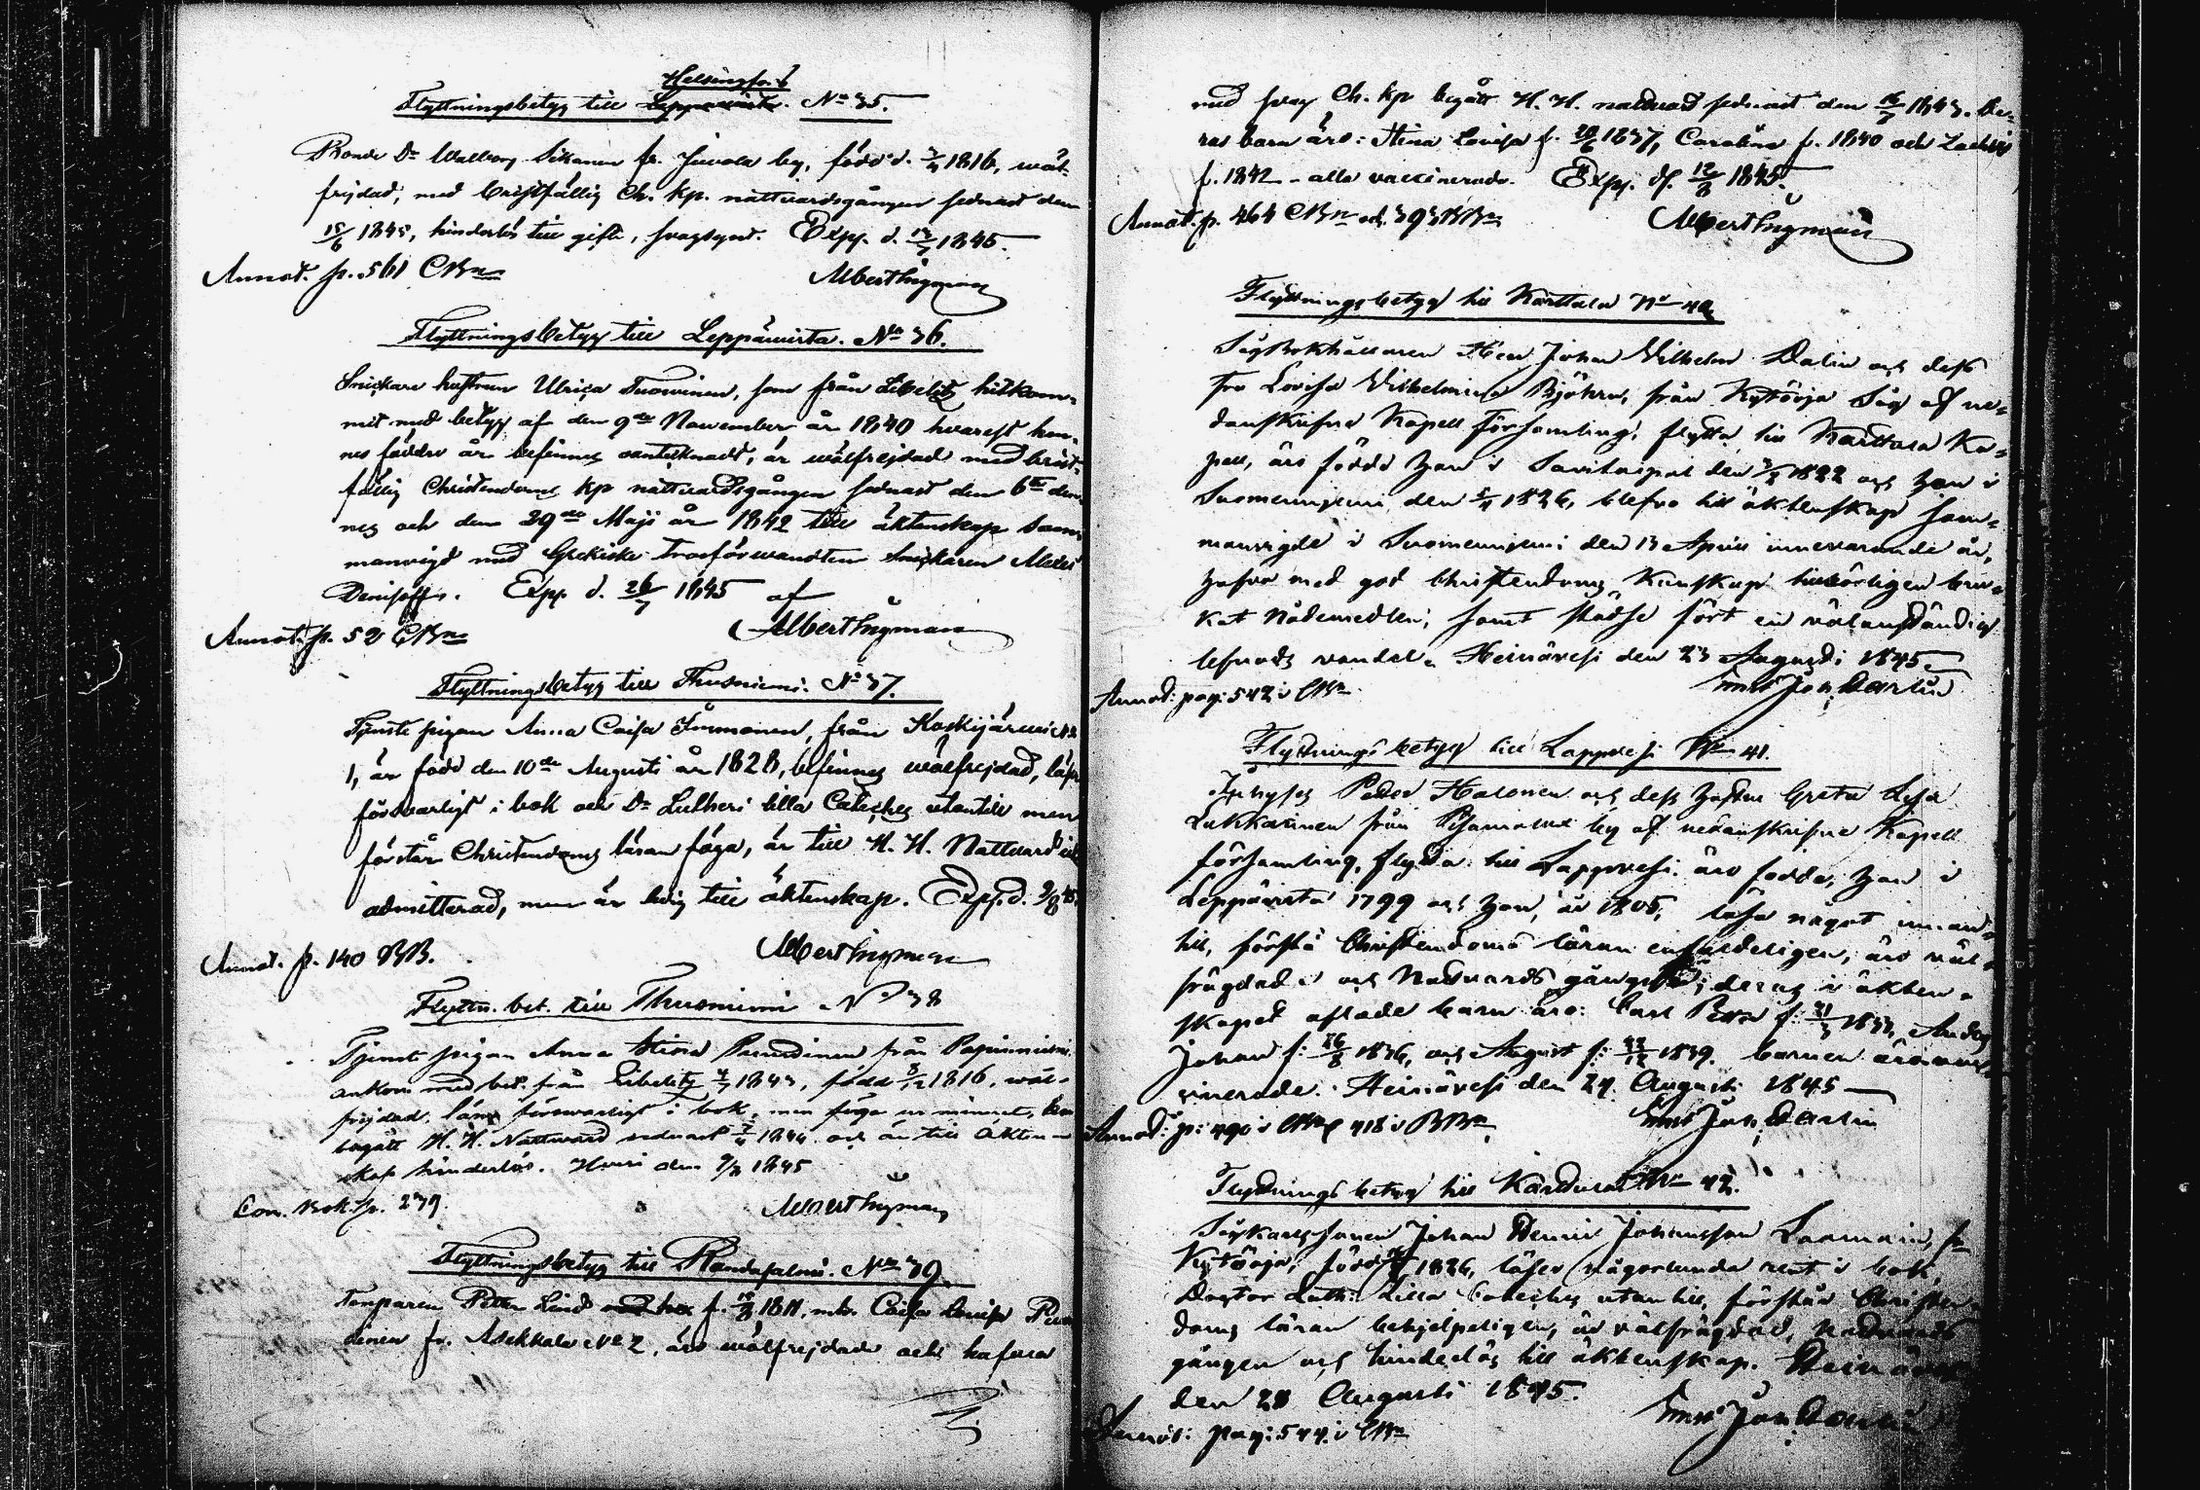 Helsingfors
Flyttningsbetyg till Leppävirta. No 35.
Bonde Dr Walborg Sikanen fr. Juvola by, född d. 1816, wäl-
frejdad, med bristfällig Ch. kp. nattvardsgången sednast den
15/6 1845, hinderlös till gifte, Exp. d. 1845.
Annot. p. 561 CBn
Albert Ingman
Flyttningsbetyg till Leppävirta. No 36.
Snickare hustrun Ulrica Tuovinen, som från Libelitz hitkom-
mit med betyg af den 9de November år 1840 hvarest hen-
nes födelse år befinnes antecknadt, är wälfrejdad med brist-
fällig Christendoms kp nattvardsgången sednast den 6te den-
nes och den 29de Maji år 1842 till äktenskap sam-
manvigd med Grekiske Trosförwandten Snickaren
Denisoff. Exp. d. 26/7 1845 af
Annot. p. 52 CBn
Albert Ingman
Flyttningsbetyg till Thusniemi. No 37.
Tjenste pigan Anna Caisa Immonen, från Koskijärvi No
1, är född den 10de Augusti år 1828, befinnes wälfrejdad, läser
försvarligt i bok och Dr Lutheri lilla Cateches utantill men
förstår Christendoms läran föga, är till H. H. Nattvard ej
admitterad, men är ledig till äktenskap. Exp. d. 9/8 45.
Annot. p. 140 BB.
Albert Ingman
Flyttn. bet. till Thusniemi No 38
Tjenst pigan Anna Stina från
ankom med bet. från Libelitz 1843, född 1816, wäl-
frejdad, läser försvarligt i bok, men föga ur minnet, har
begått H. H. Nattvard sednast 1844 och är till äkten-
skap hinderlös. den 9/8 1845
Com. Bok. p. 279.
Albert Ingman
Flyttningsbetyg till Randasalmi. No 39.
Petter Lind f. 1811, Caisa Lovisa
fr. No 2, äro wälfrejdade och hafva
med Ch. kp begått H. H. nattvard sednast den 1843. De-
ras barn äro: Stina Lovisa f. 1837, Carolina f. 1840 och
f. 1842 - alla vaccinerade. Exp. d. 12/8 1845.
Annot. p. 464 CBn och 393 BBn
Albert Ingman
Flyttningsbetyg till Karttula No 40.
Sågbokhållaren Herr Johan Wilhelm Dalin och dess
fru Lovisa Wilhelmina Björkn, från Kytöoja Såg af ne-
danskrifne Kapell församling, flytta till Karttula Ka-
pell, äro födde han i Savitaipal den 1822 och hon i
Suomenniemi den 1826, blefvo till äktenskap sam-
manvigde i Suomenniemi den 13 April innevarande år,
hafva med god Christendoms kunskap behörligen bru-
kat Nådemedlen, samt städse fört en välanständig
lefnads vandel. Heinävesi den 23 Augusti 1845.
Annot: pag: 542 i CBn
Joh. Dahlin
Flyttnings betyg till Lappvesi No 41.
Inhyses Petter Halonen och dess hustru Greta Lisa
Lukkarinen från by af nedanskrifne Kapell
församling, flytta till Lappvesi, äro födde, han i
Leppävirta 1799 och hon, år 1805, läsa något innan-
till, förstå Christendoms läran enfaldeligen, äro väl-
frägdade och Nattvards gångne; deras i äkten-
skapet aflade barn äro: Carl Petter f: 1833, Anders
Johan f: 26/8 1836, och August f: 1839. barnen äro vac-
cinerade. Heinävesi den 24 Augusti 1845
Annot: p: 490 i CBn 418 i BBn
Joh. Dahlin
Flyttnings betyg till Karttula No 42.
Johan Johansson fr
Kytöoja, född 1826, läser någorlunda rent i bok,
Doctor Luth: Lilla Cateches utantill, förstår Christen-
doms läran behjelpeligen, är välfrägdad, Nattvards
gången och hinderlös till äktenskap. Heinävesi
den 28 Augusti 1845.
Annot: pag: 544 i CBn
Joh. Dahlin